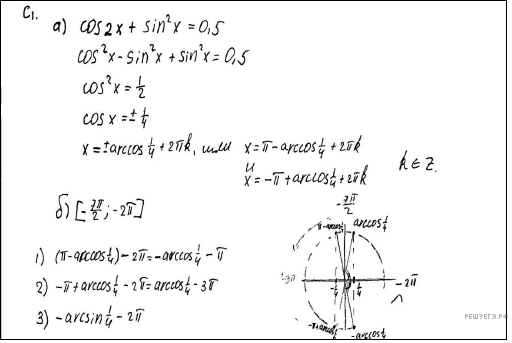 C₁.
а) cos2x + sin²x = 0,5
cos²x - sin²x + sin²x = 0,5
cos²x = 1/2
cosx = ± 1/4
x = ±arccos 1/4 + 2πk, или x = π - arccos 1/4 + 2πk
и
x = -π + arccos 1/4 + 2πk
k ∈ Z.
б) [-7π/2 ; -2π]
1) (π - arccos 1/4) - 2π = -arccos 1/4 - π
2) -π + arccos 1/4 - 2π = arccos 1/4 - 3π
3) -arcsin 1/4 - 2π
-7π/2
π - arccos 1/4
arccos 1/4
-3π
-1/4
1/4
-2π
-π + arccos 1/4
-arccos 1/4
РЕШУЕГЭ.РФ